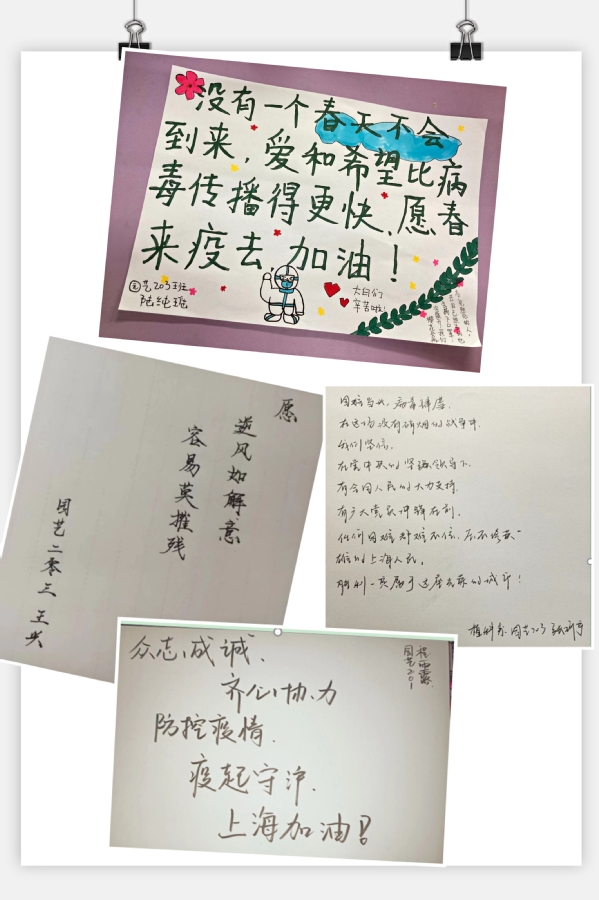 没有一个春天不会
到来，爱和希望比病
毒传播得更快、愿春
来疫去 加油！
园艺203班
大白们
辛苦啦！
愿
逆风如解意
容易莫摧残
园艺二零三 王
国难当头，病毒肆虐，
在这场没有硝烟的战争中，
我们坚信，
在党中央的坚强领导下，
有全国人民的大力支持，
有广大党员冲锋在前，
任何困难都难不倒、压不垮英
雄的上海人民，
胜利一定属于这座英雄的城市！
植科系 园艺203
众志成诚、
齐心协力
防控疫情、
疫起守沪、
上海加油！
园艺201